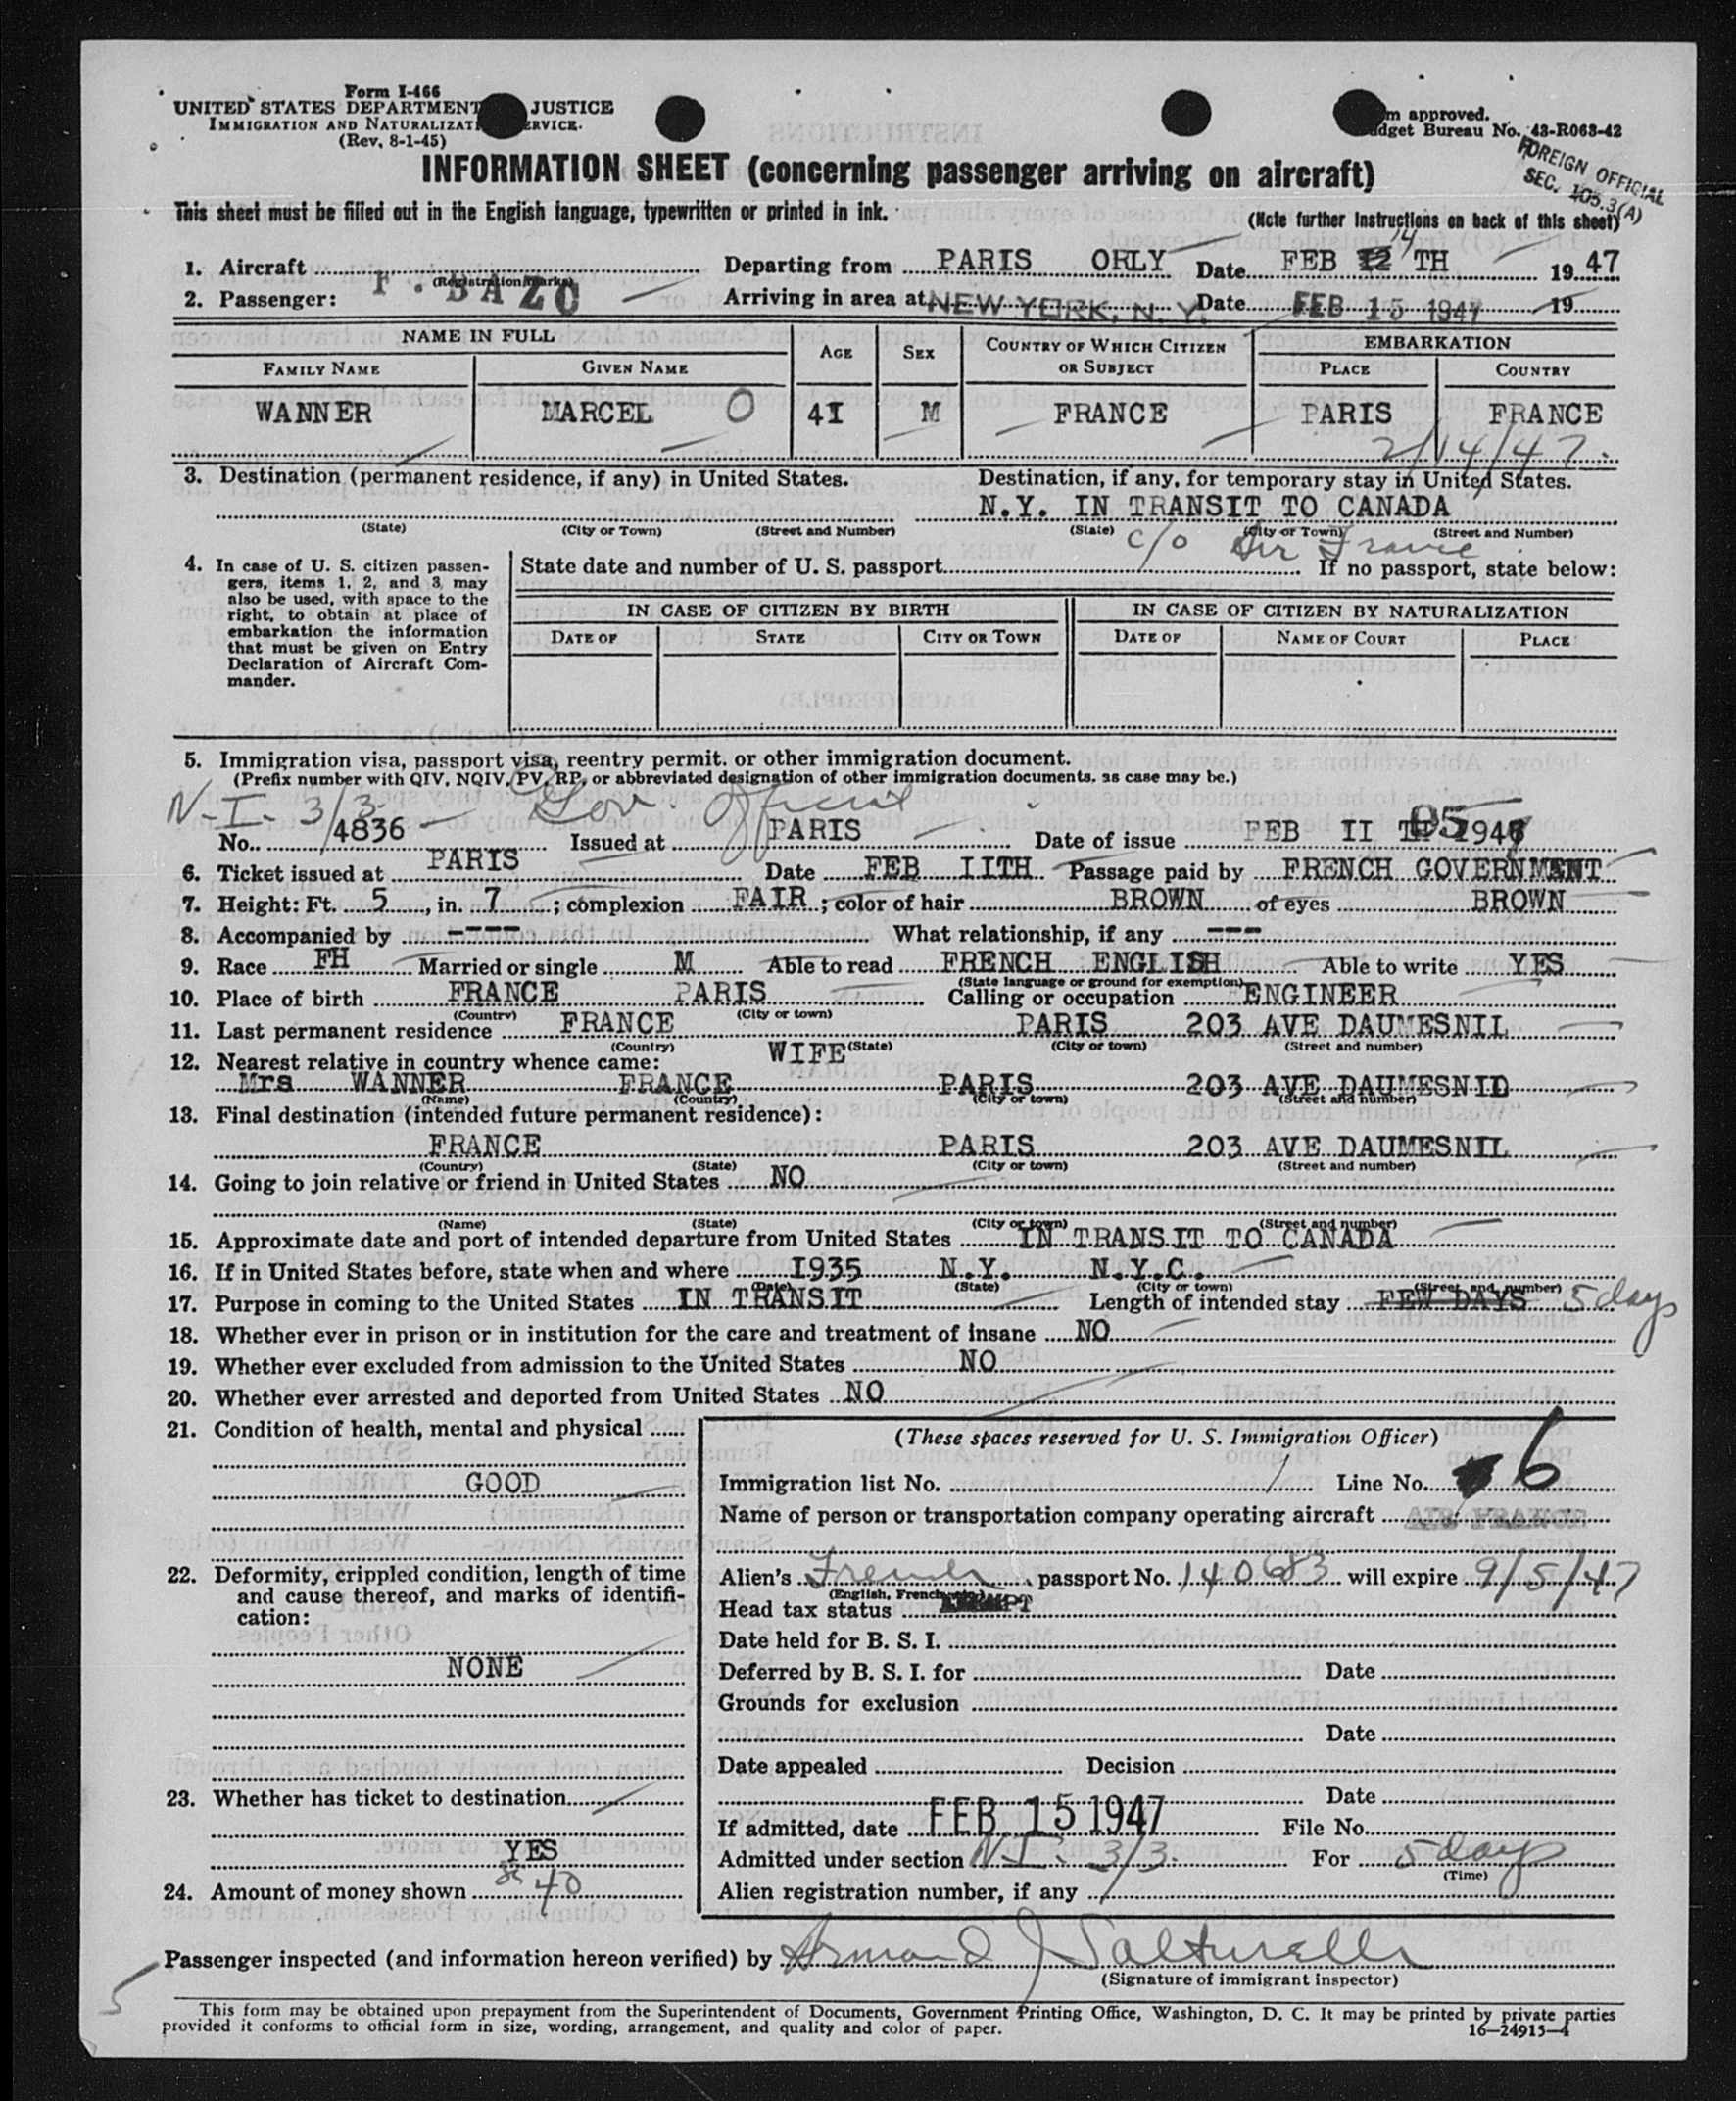 Form I-466
UNITED STATES DEPARTMENT JUSTICE
IMMIGRATION AND NATURALIZATI ERVICE.
(Rev. 8-1-45)
m approved.
dget Bureau No. 43-R063-42
FOREIGN OFFICIAL
SEC. 105.3(A)
INFORMATION SHEET (concerning passenger arriving on aircraft)
This sheet must be filled out in the English language, typewritten or printed in ink.
(Note further instructions on back of this sheet)
1. Aircraft F.BAZO Departing from PARIS ORLY Date FEB 12 14 TH 19 47
(Registration marks)
2. Passenger: Arriving in area at NEW YORK, N. Y. Date FEB 15 1947 19
NAME IN FULL AGE SEX COUNTRY OF WHICH CITIZEN OR SUBJECT EMBARKATION
FAMILY NAME GIVEN NAME PLACE COUNTRY
WANNER MARCEL O 4I M FRANCE PARIS FRANCE
2/14/47.
3. Destination (permanent residence, if any) in United States. Destination, if any, for temporary stay in United States.
N.Y. IN TRANSIT TO CANADA
(State) (City or Town) (Street and Number) (State) (City or Town) (Street and Number)
c/o Air France
4. In case of U. S. citizen passen-
gers, items 1, 2, and 3 may
also be used, with space to the
right, to obtain at place of
embarkation the information
that must be given on Entry
Declaration of Aircraft Com-
mander.
State date and number of U. S. passport If no passport, state below:
IN CASE OF CITIZEN BY BIRTH IN CASE OF CITIZEN BY NATURALIZATION
DATE OF STATE CITY OR TOWN DATE OF NAME OF COURT PLACE
5. Immigration visa, passport visa, reentry permit, or other immigration document.
(Prefix number with QIV, NQIV, PV, RP, or abbreviated designation of other immigration documents, as case may be.)
N-I- 3/3 Gov. Official
No. 4836 Issued at PARIS Date of issue FEB II TH 1947
6. Ticket issued at PARIS Date FEB IITH Passage paid by FRENCH GOVERNMENT
7. Height: Ft. 5, in. 7; complexion FAIR; color of hair BROWN of eyes BROWN
8. Accompanied by ---- What relationship, if any ---
9. Race FH Married or single M Able to read FRENCH ENGLISH Able to write YES
(State language or ground for exemption)
10. Place of birth FRANCE PARIS Calling or occupation ENGINEER
(Country) (City or town)
11. Last permanent residence FRANCE PARIS 203 AVE DAUMESNIL
(Country) (State) (City or town) (Street and number)
12. Nearest relative in country whence came: WIFE
Mrs WANNER FRANCE PARIS 203 AVE DAUMESNID
(Name) (Country) (City or town) (Street and number)
13. Final destination (intended future permanent residence):
FRANCE PARIS 203 AVE DAUMESNIL
(Country) (State) (City or town) (Street and number)
14. Going to join relative or friend in United States NO
(Name) (State) (City or town) (Street and number)
15. Approximate date and port of intended departure from United States IN TRANSIT TO CANADA
16. If in United States before, state when and where I935 N.Y. N.Y.C.
(Date) (State) (City or town) (Street and number)
17. Purpose in coming to the United States IN TRANSIT Length of intended stay FEW DAYS 5 days
18. Whether ever in prison or in institution for the care and treatment of insane NO
19. Whether ever excluded from admission to the United States NO
20. Whether ever arrested and deported from United States NO
21. Condition of health, mental and physical
GOOD
22. Deformity, crippled condition, length of time
and cause thereof, and marks of identifi-
cation:
NONE
23. Whether has ticket to destination
YES
24. Amount of money shown 40
(These spaces reserved for U. S. Immigration Officer)
Immigration list No. 1 Line No. 6
Name of person or transportation company operating aircraft AIR FRANCE
Alien's French passport No. 140683 will expire 9/5/47
(English, French, etc.)
Head tax status EXEMPT
Date held for B. S. I.
Deferred by B. S. I. for Date
Grounds for exclusion
Date
Date appealed Decision
Date
If admitted, date FEB 15 1947 File No.
Admitted under section N-I- 3/3. For 5 days
(Time)
Alien registration number, if any
Passenger inspected (and information hereon verified) by Armand J
(Signature of immigrant inspector)
5
This form may be obtained upon prepayment from the Superintendent of Documents, Government Printing Office, Washington, D. C. It may be printed by private parties
provided it conforms to official form in size, wording, arrangement, and quality and color of paper.
16—24915-4